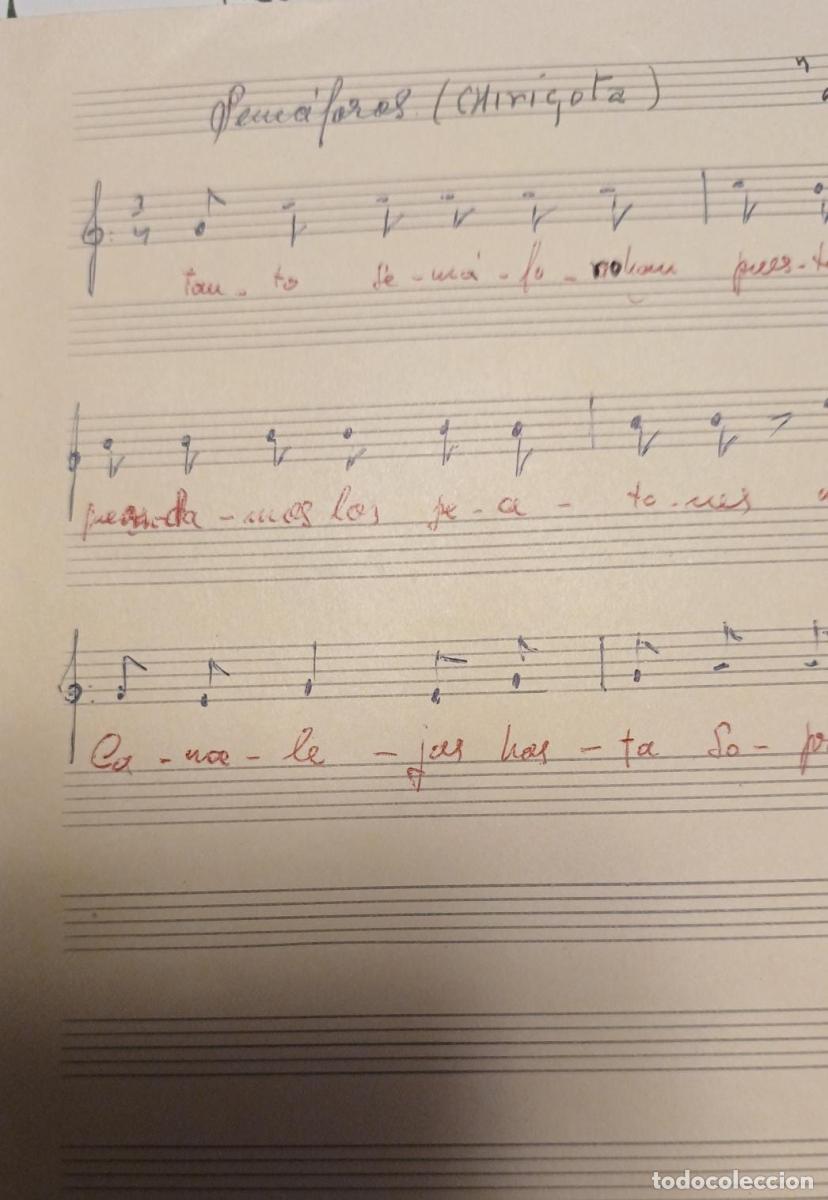 Semáforos (CHirigota)
3
4
tan - to se - má - fo - nohan pues - t
mos los pe - a - to - nes
Ca - na - le - jas has - ta So - p
todocoleccion